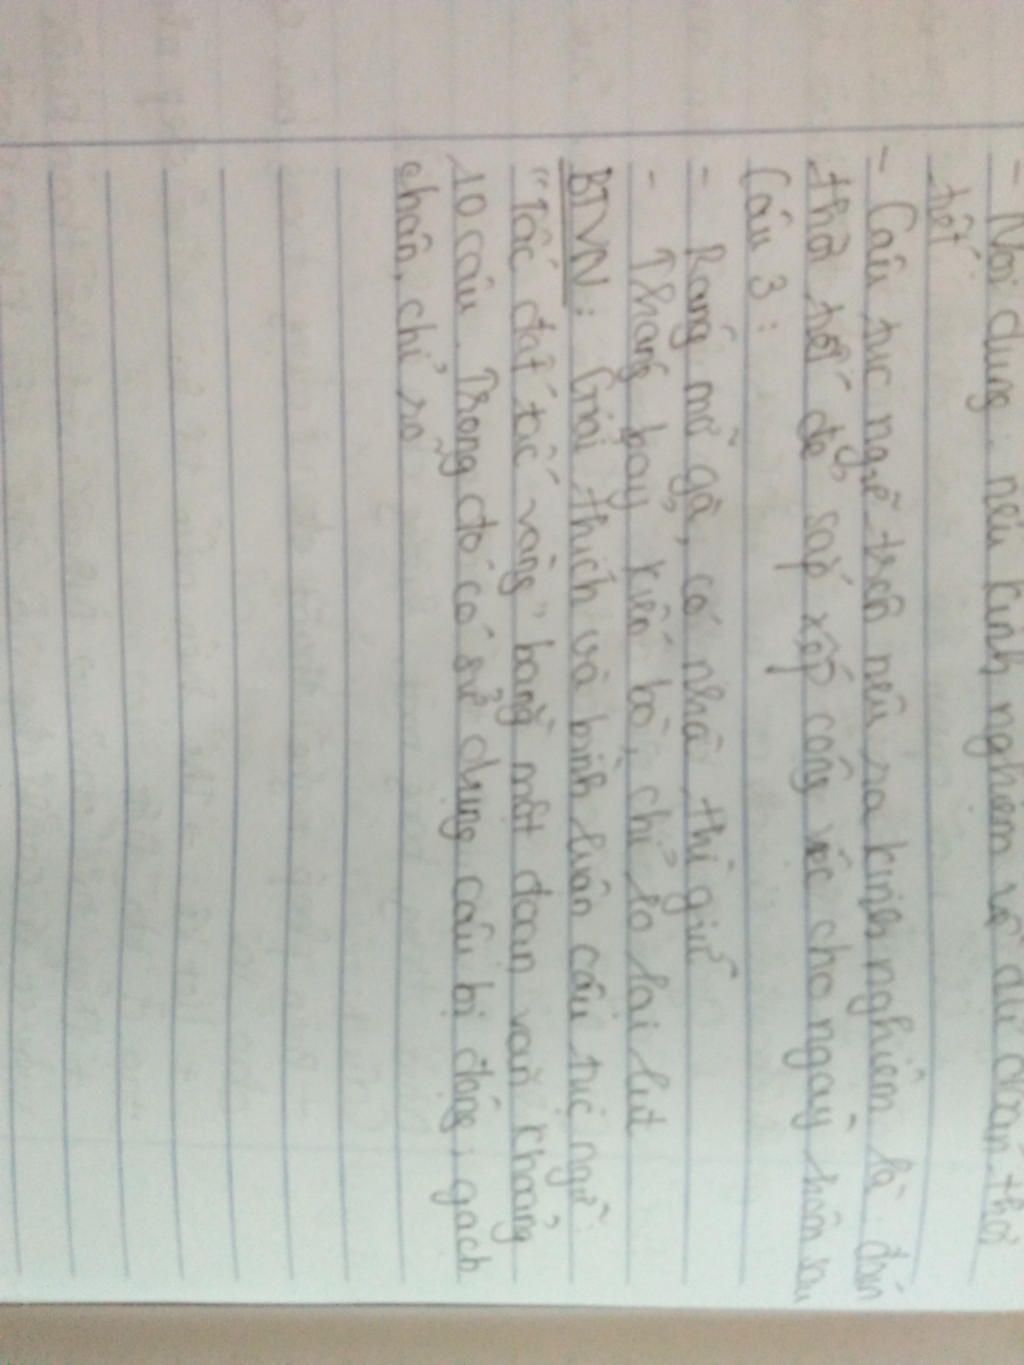 - Nội dung: nêu kinh nghiệm về dự đoán thời
tiết
- Câu tục ngữ trên nêu ra kinh nghiệm là đoán
thời tiết để sắp xếp công việc cho ngày hôm sau
Câu 3:
- Ráng mỡ gà, có nhà thì giữ
- Tháng bảy kiến bò, chỉ lo lại lụt
BTVN: Giải thích và bình luận câu tục ngữ:
"Tấc đất tấc vàng" bằng một đoạn văn khoảng
10 câu. Trong đó có sử dụng câu bị động, gạch
chân, chỉ rõ